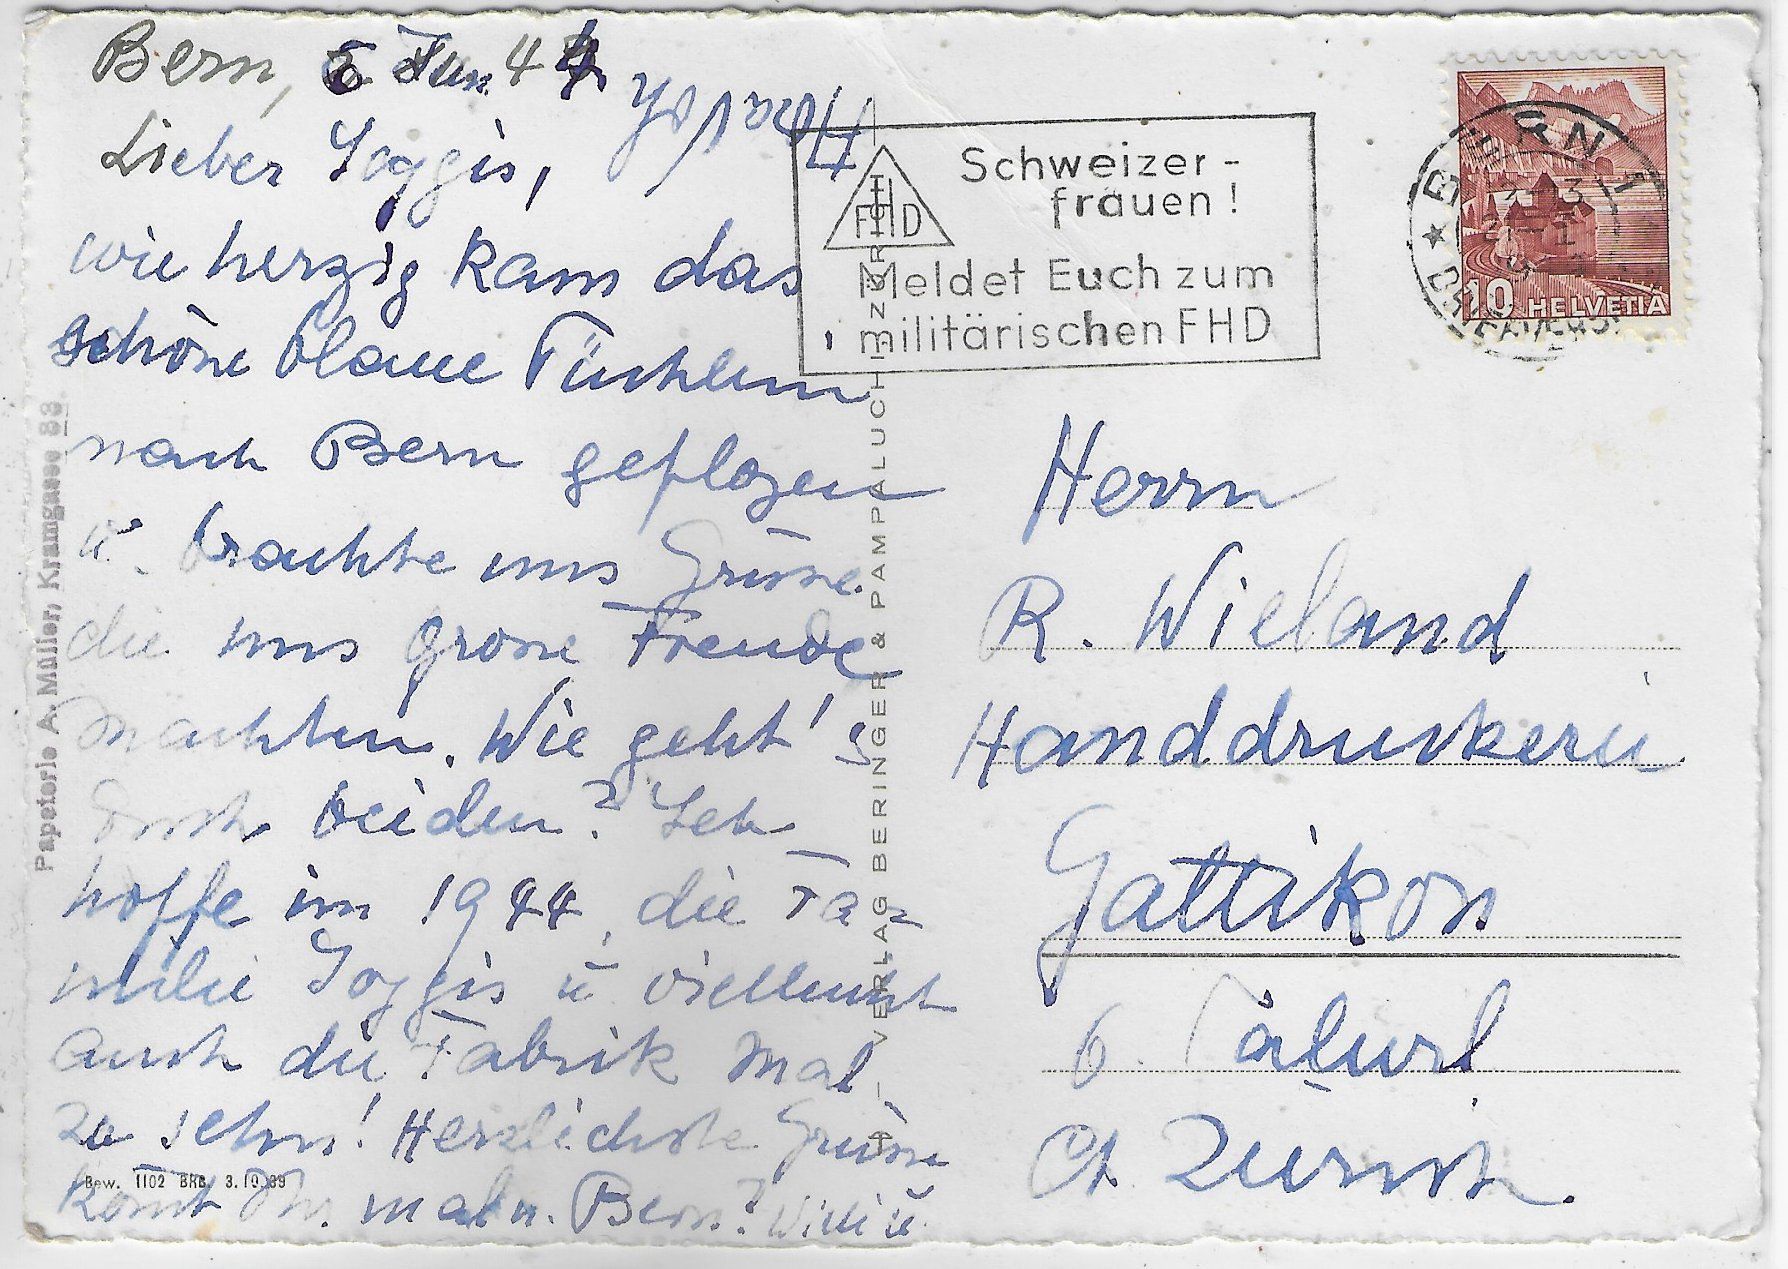 Bern, 6 Jan. 44
Lieber Joggis,
wie herzig kam das
schöne blaue Tüchlein
nach Bern geflogen
u. brachte uns Grüsse
die uns grosse Freude
machten. Wie geht's
Euch beiden? Ich
hoffe im 1944, die Fa=
milie Joggis u. vielleicht
auch die Fabrik mal
zu sehn! Herzlichste Grüsse
komt Ihr mal n. Bern? Willi u.
Schweizer-
frauen!
FHD
Meldet Euch zum
militärischen FHD
BERN 1
BRIEFVERS.
10 HELVETIA
Herrn
R. Wieland
Handdruckerei
Gattikon
b. Talwil
Ct Zürich.
Papeterie A. Müller, Kramgasse 83.
VERLAG BERINGER & PAMPALUCHI ZÜRICH
Bew. 1102 BRB 3.10.39